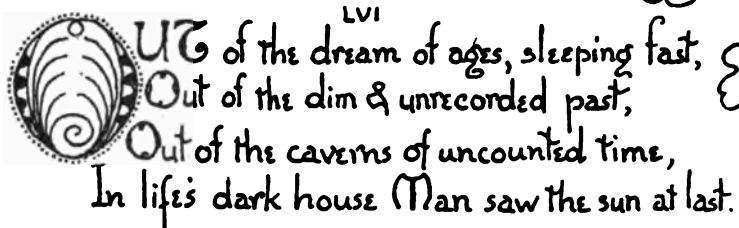 LVI
OUT of the dream of ages, sleeping fast,
Out of the dim & unrecorded past,
Out of the caverns of uncounted time,
In life's dark house Man saw the sun at last.